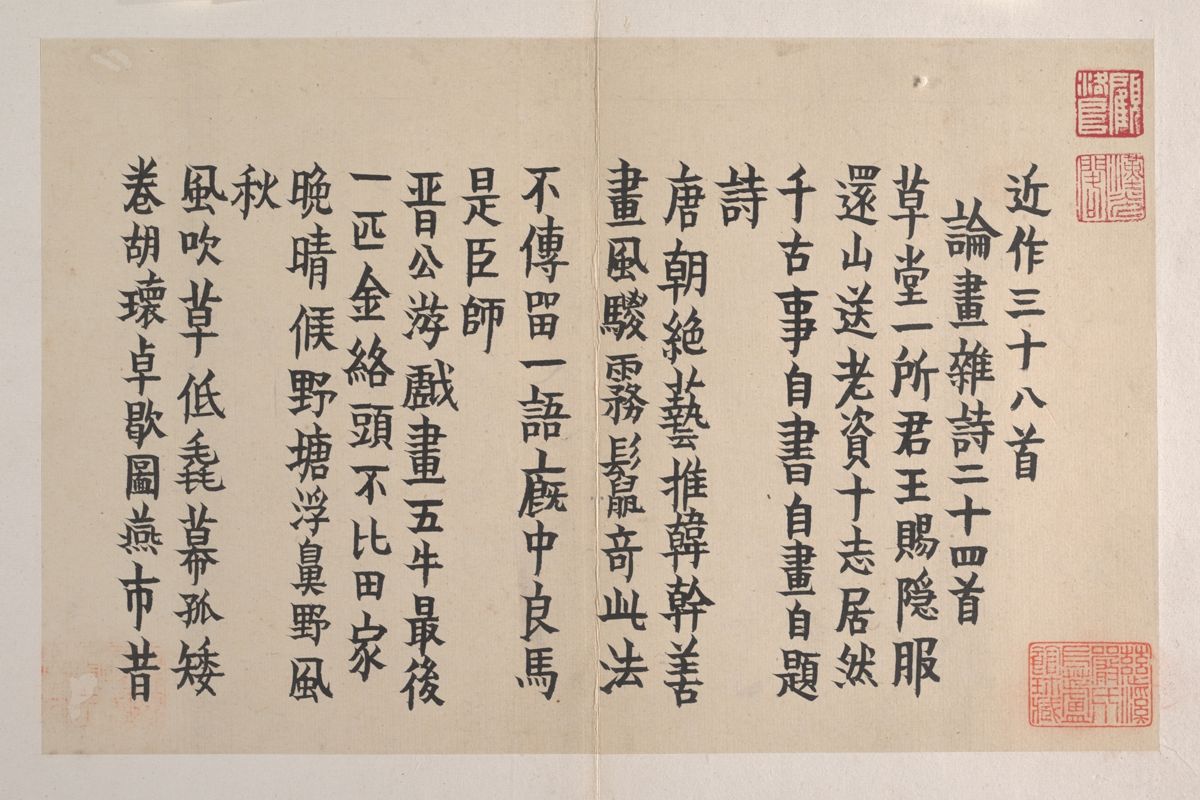 近作三十八首
論畫雜詩二十四首
草堂一所君王賜隠服
還山送老資十志居然
千古事自書自畫自題
詩
唐朝絶藝推韓幹善
畫風騣霧鬣奇此法
不傳留一語廐中良馬
是臣師
晉公游戲畫五牛最後
一匹金絡頭不比田家
晚晴候野塘浮鼻野風
秋
風吹草低毳幕孤矮
卷胡環卓歇圖燕市昔
顧洛阜
漢光閣